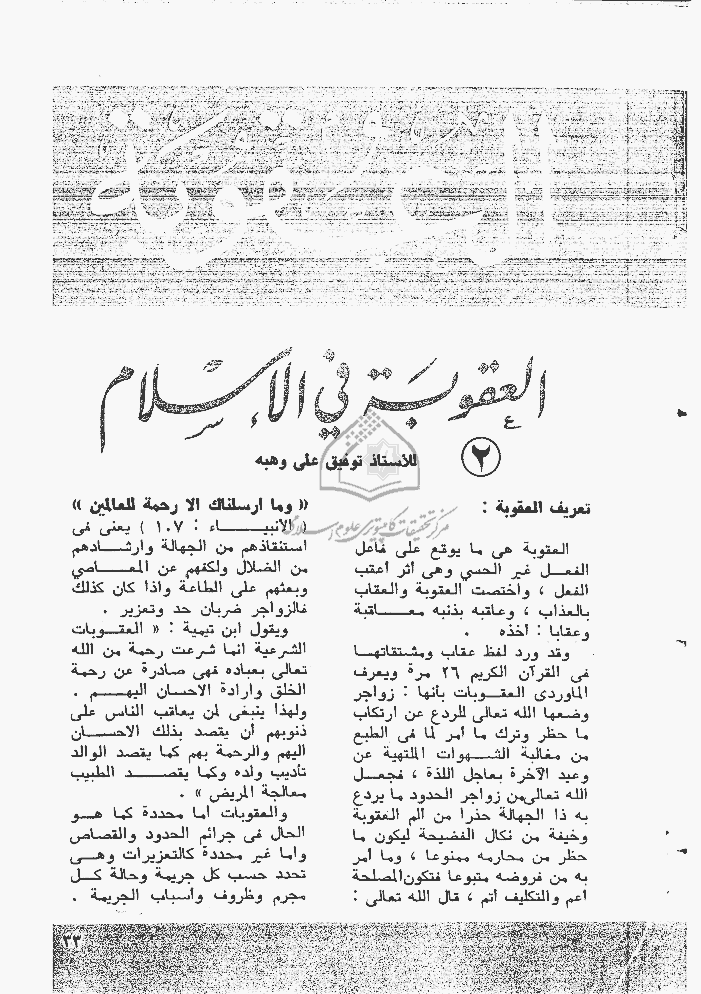 العقوبة في الإسلام
٢
للأستاذ توفيق على وهبه
تعريف العقوبة :
العقوبة هى ما يوقع على فاعل
الفعـل غير الحسي وهى أثر أعقب
الفعل ، واختصت العقوبة والعقاب
بالعذاب ، وعاقبه بذنبه معـــاقبة
وعقابا : أخذه .
وقد ورد لفظ عقاب ومشتقاتهـا
فى القرآن الكريم ٢٦ مرة ويعرف
الماوردى العقـوبات بأنها : زواجر
وضعها الله تعالى للردع عن ارتكاب
ما حظر وترك ما أمر لما فى الطبع
من مغالبة الشـهوات الملتهية عن
وعيد الآخرة بعاجل اللذة ، فجعـل
الله تعالى من زواجر الحدود ما يردع
به ذا الجهالة حذرا من ألم العقوبة
وخيفة من نكال الفضيحة ليكون ما
حظر من محارمه ممنوعا ، وما أمر
به من فروضه متبوعا فتكون المصلحة
أعم والتكليف أتم ، قال الله تعالى :
« وما ارسلناك الا رحمة للعالمين »
( الأنبيـــاء : ١٠٧ ) يعنى فى
استنقاذهم من الجهالة وارشـادهم
من الضلال ولكفهم عن المعـاصي
وبعثهم على الطاعة واذا كان كذلك
فالزواجر ضربان حد وتعزير .
ويقول ابن تيمية : « العقـوبات
الشرعية انما شرعت رحمة من الله
تعالى بعباده فهى صادرة عن رحمة
الخلق وارادة الاحسان اليهـم .
ولهذا ينبغى لمن يعاقب الناس على
ذنوبهم أن يقصد بذلك الاحسـان
اليهم والرحمة بهم كما يقصد الوالد
تأديب ولده وكما يقصـد الطبيب
معالجة المريض » .
والعقوبات أما محددة كما هـو
الحال فى جرائم الحدود والقصاص
وأما غير محددة كالتعزيرات وهـى
تحدد حسب كل جريمة وحالة كـل
مجرم وظروف وأسباب الجريمة .
٣٣
مرکز تحقیقات کامپیوتری علوم اسلامی